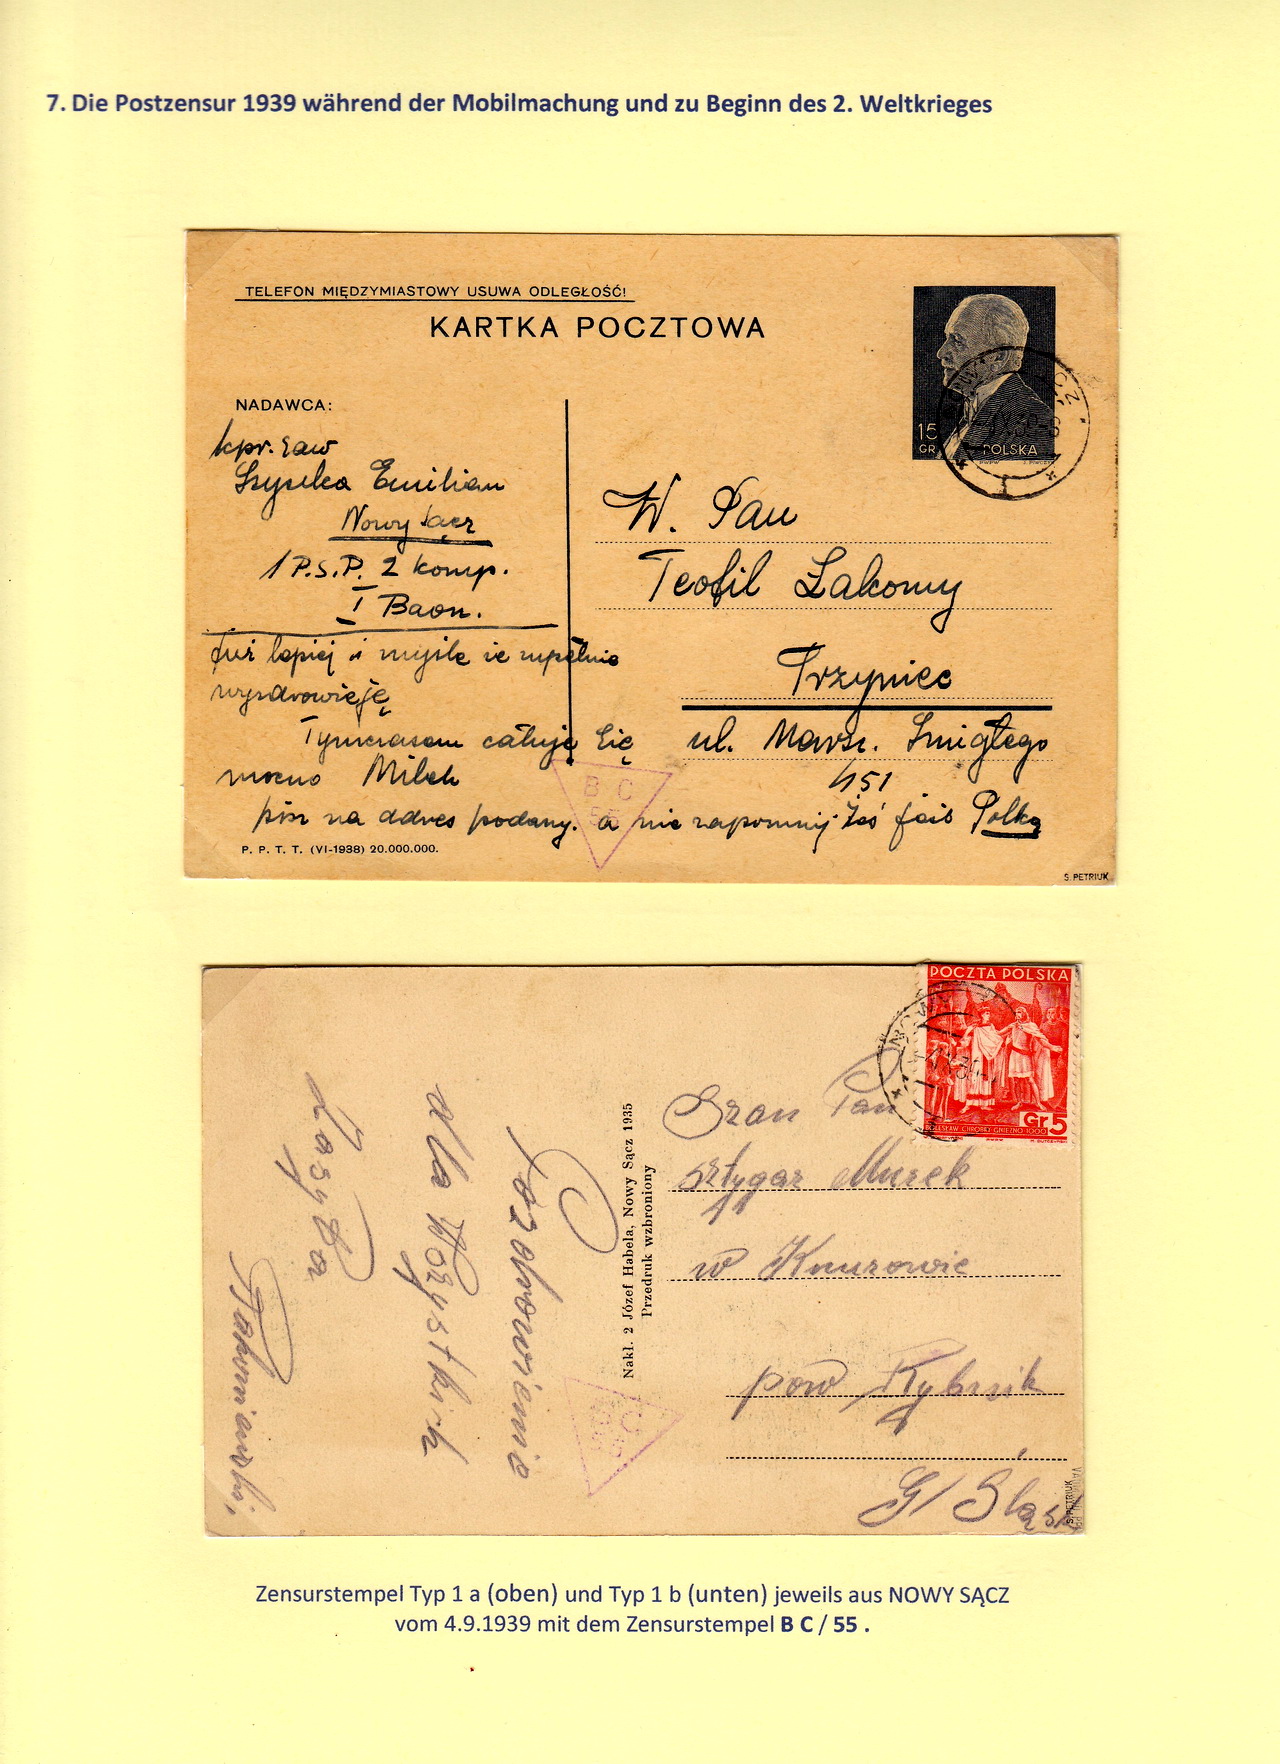 7. Die Postzensur 1939 während der Mobilmachung und zu Beginn des 2. Weltkrieges
TELEFON MIĘDZYMIASTOWY USUWA ODLEGŁOŚĆ!
KARTKA POCZTOWA
15
GR
POLSKA
NADAWCA:
kpr.
Emilian
Nowy Sącz
1 P.S.P. 2 komp.
I Baon.
W. Pan
Teofil Żakowy
Trzyniec
ul. Marsz. Śmigłego
451
Już lepiej i myślę że zupełnie
wyzdrowieję
Tymczasem całuję Cię
mocno Milek
pisz na adres podany. a nie zapomnij żeś jest Polką
B C
55
P. P. T. T. (VI-1938) 20.000.000.
S. PETRIUK
POCZTA POLSKA
BOLESŁAW CHROBRY-GNIEZNO 1000
Gr 5
NOWY
Szan Pan
sztygar Murek
w Knurowie
pow Rybnik
G/Śląsk
Nakł. 2 Józef Habela, Nowy Sącz 1935
Przedruk wzbroniony
Pozdrowienie
dla Wszystkich
B C
S. PETRIUK
Zensurstempel Typ 1 a (oben) und Typ 1 b (unten) jeweils aus NOWY SĄCZ
vom 4.9.1939 mit dem Zensurstempel B C / 55 .